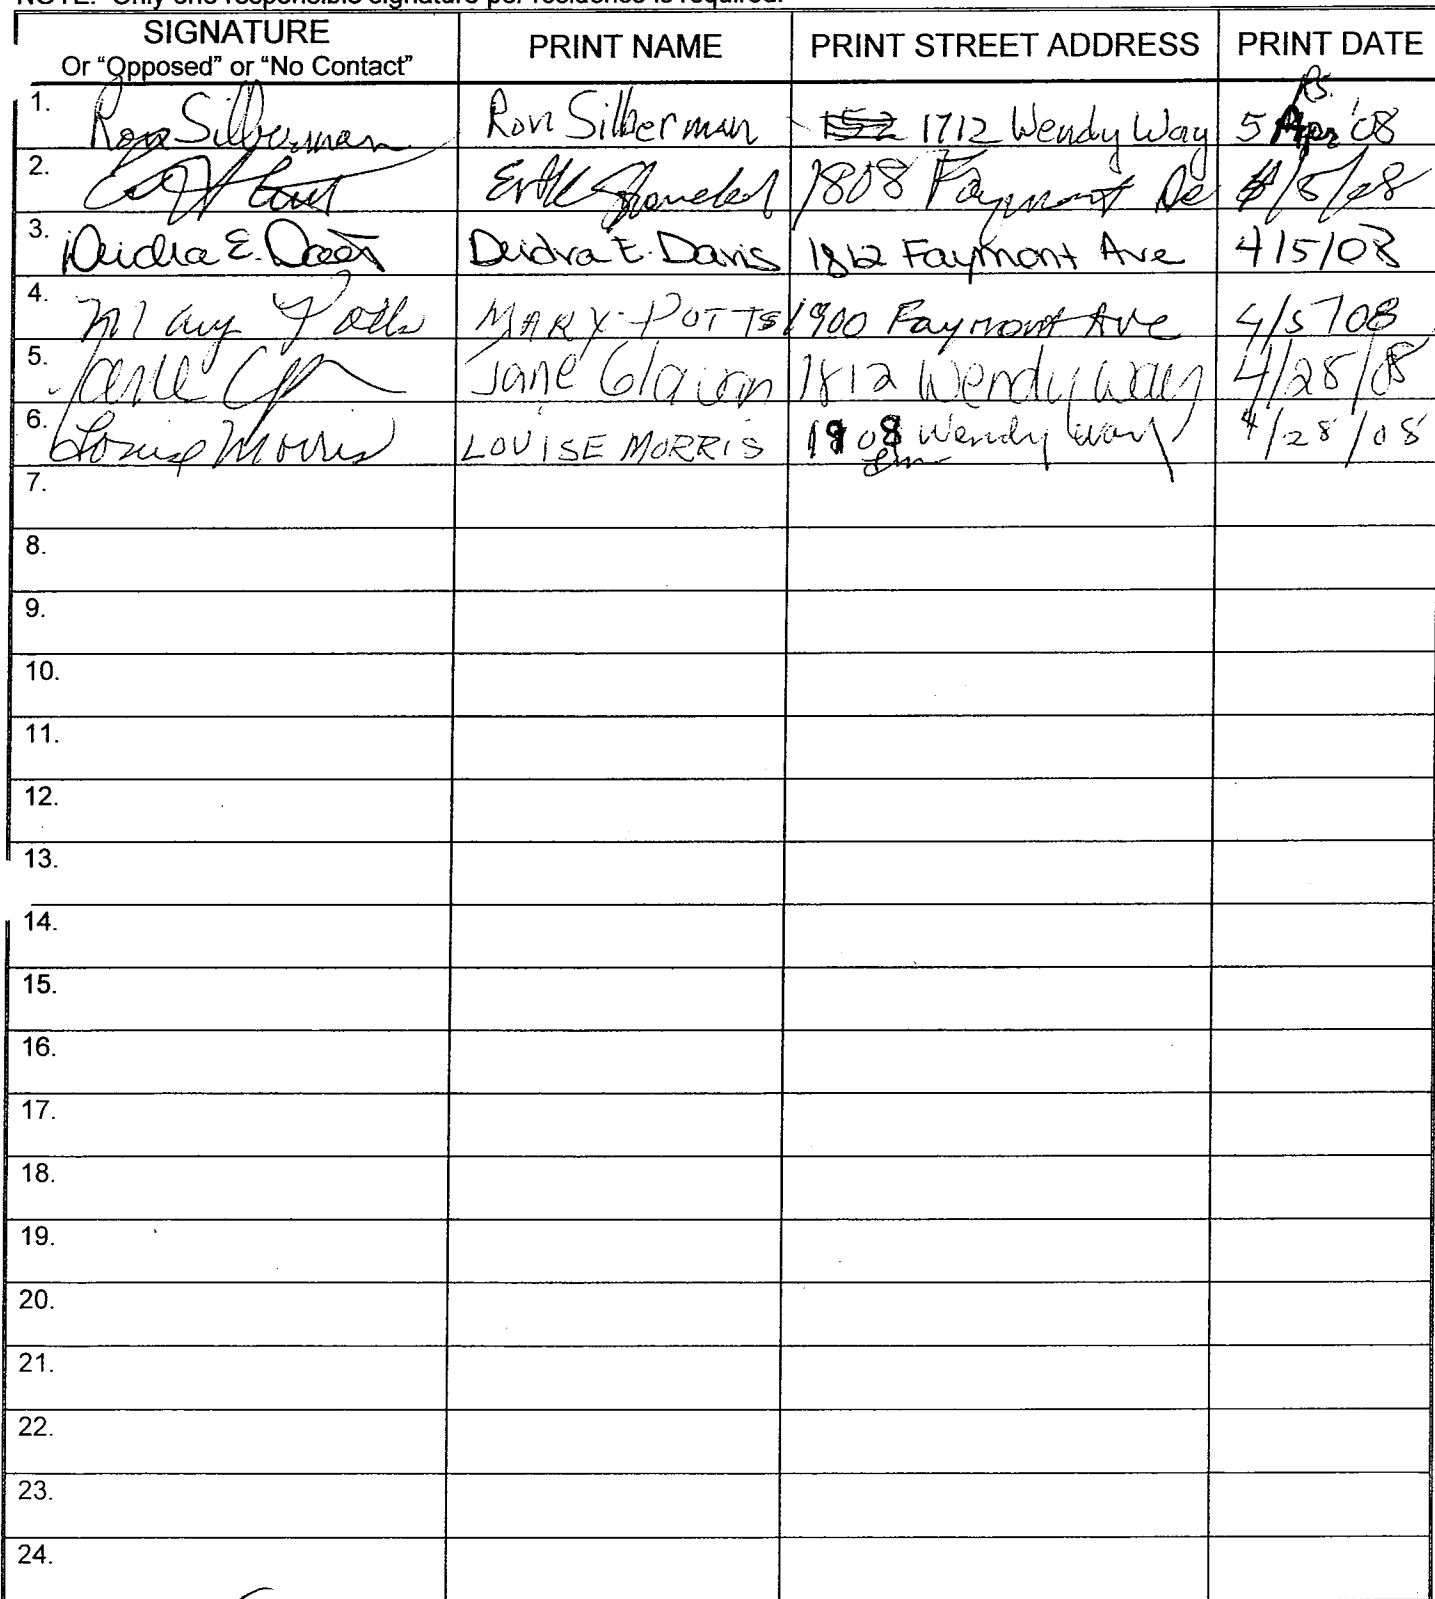 NOTE: Only one responsible signature per residence is required.
SIGNATURE
Or "Opposed" or "No Contact"
PRINT NAME
PRINT STREET ADDRESS
PRINT DATE
RS.
1. Ron Silberman Ron Silberman 152 1712 Wendy Way 5 Apr '08
2. 1808 Faymont 4/5/08
3. Deidra E. Davis Deidra E. Davis 1812 Faymont Ave 4/5/08
4. Mary Potts MARY POTTS 1900 Faymont Ave 4/5/08
5. Jane Jane 1812 Wendy Way 4/28/08
6. Louise Morris LOUISE MORRIS 1808 Wendy Way 4/28/08
lm
7.
8.
9.
10.
11.
12.
13.
14.
15.
16.
17.
18.
19.
20.
21.
22.
23.
24.